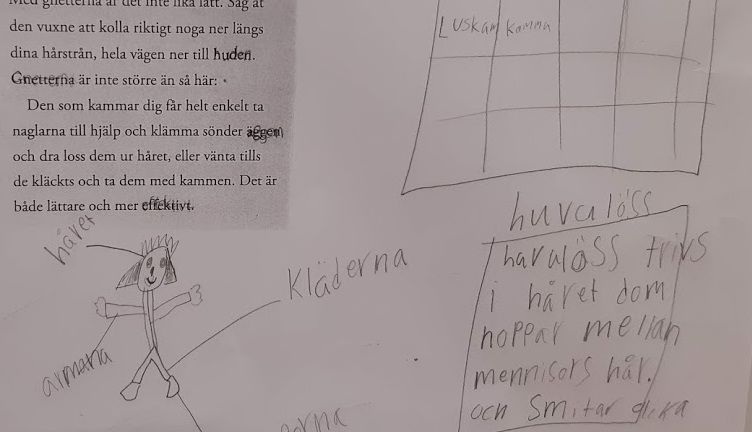 Med gnetterna är det inte lika lätt. Säg åt
den vuxne att kolla riktigt noga ner längs
dina hårstrån, hela vägen ner till huden.
Gnetterna är inte större än så här: •
Den som kammar dig får helt enkelt ta
naglarna till hjälp och klämma sönder äggen
och dra loss dem ur håret, eller vänta tills
de kläckts och ta dem med kammen. Det är
både lättare och mer effektivt.
Luskam komma
håret
Kläderna
armarna
huvulöss
havulöss trivs
i håret dom
hoppar mellan
mennisors hår.
och Smitar